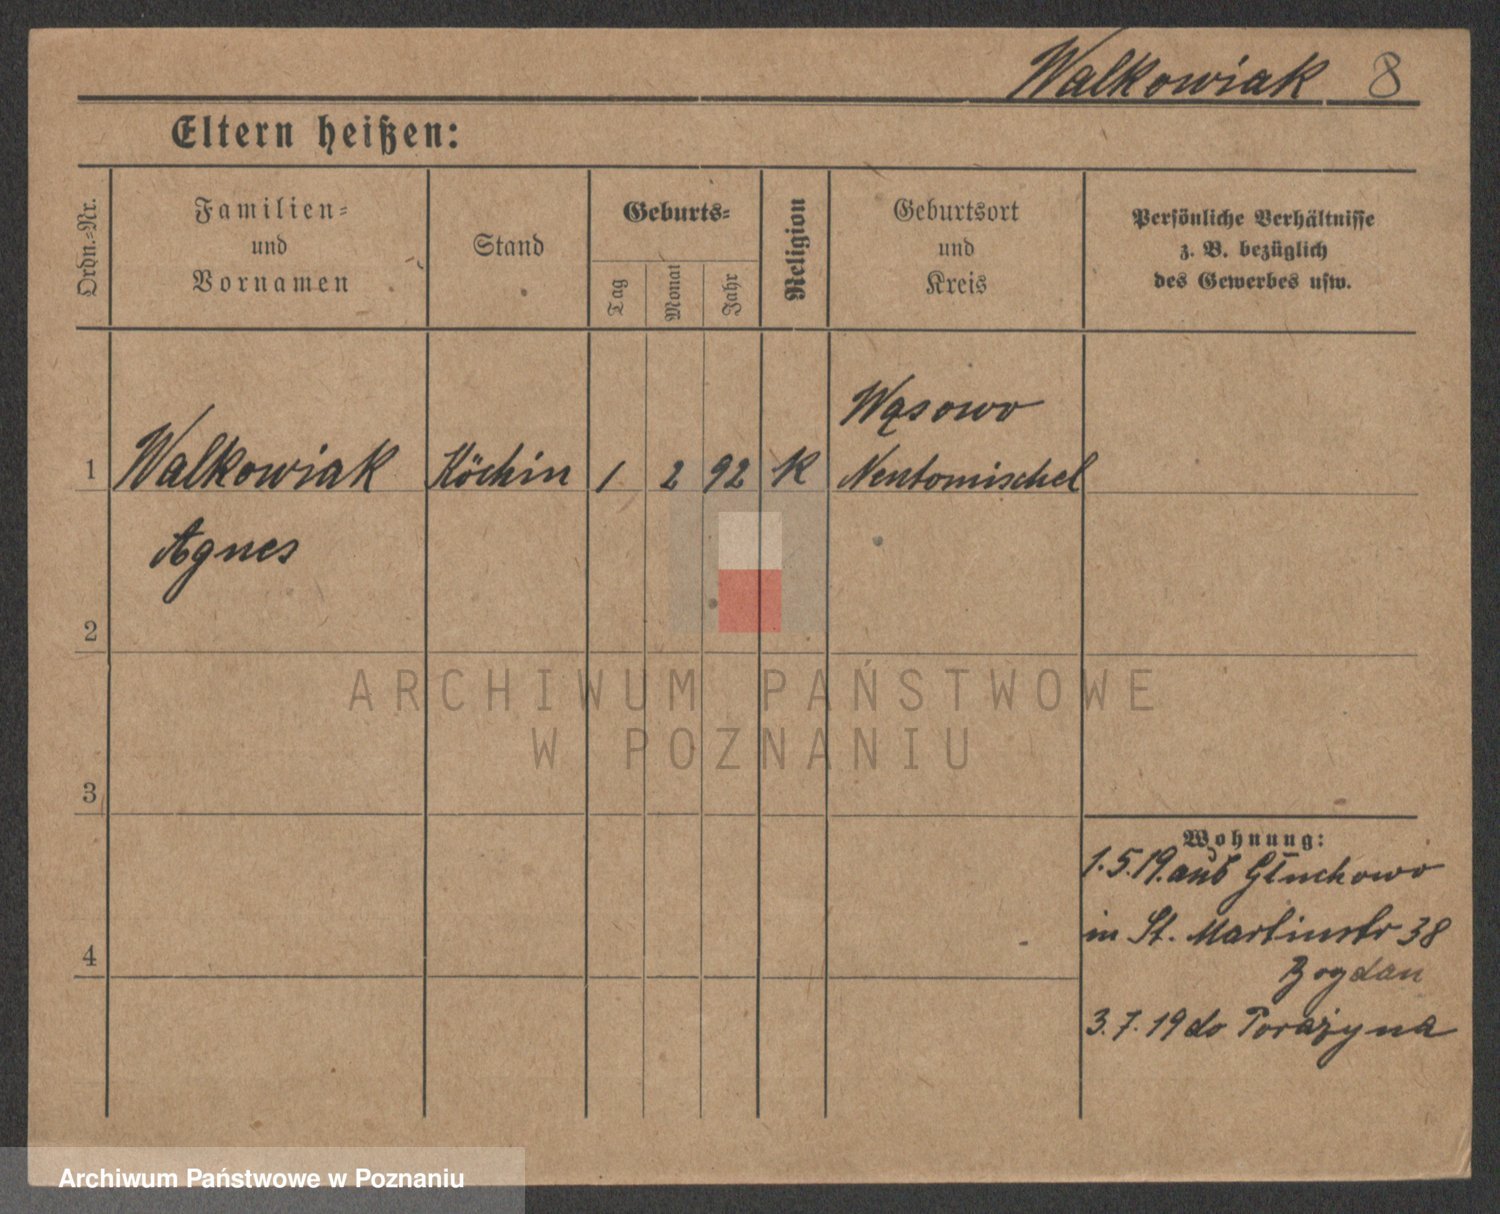 Walkowiak 8
Eltern heißen:
Ordn.=Nr.
Familien=
und
Vornamen
Stand
Geburts=
Tag
Monat
Jahr
Religion
Geburtsort
und
Kreis
Persönliche Verhältnisse
z. B. bezüglich
des Gewerbes usw.
Wąsowo
1 Walkowiak Köchin 1 2 92 K Neutomischel
Agnes
2
3
4
Wohnung:
1.5.19. aus Głuchowo
in St. Martinstr 38
Bogdan
3.7.19 do Porażyna
ARCHIWUM PAŃSTWOWE
W POZNANIU
Archiwum Państwowe w Poznaniu